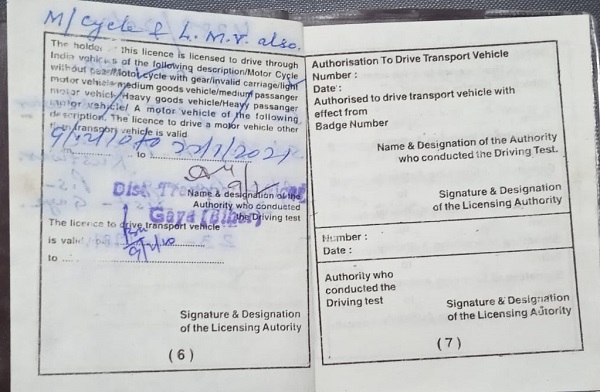 M/Cycle & L.M.V. also.
The holder this licence is licensed to drive through
India vehicles of the following description/Motor Cycle
without gear/Motorcycle with gear/invalid carriage/light
motor vehicle/medium goods vehicle/medium passenger
motor vehicle/Heavy goods vehicle/Heavy passenger
motor vehicle/ A motor vehicle of the following
description. The licence to drive a motor vehicle other
than transport vehicle is valid
to 22/1/2021
Dist. Transport
Name & designation of the
Authority who conducted
the Driving test
Gaya (Bihar)
The licence to drive transport vehicle
is valid
to
Signature & Designation
of the Licensing Autority
(6)
Authorisation To Drive Transport Vehicle
Number :
Date :
Authorised to drive transport vehicle with
effect from
Badge Number
Name & Designation of the Authority
who conducted the Driving Test.
Signature & Designation
of the Licensing Authority
Number :
Date :
Authority who
conducted the
Driving test
Signature & Designation
of the Licensing Autority
(7)